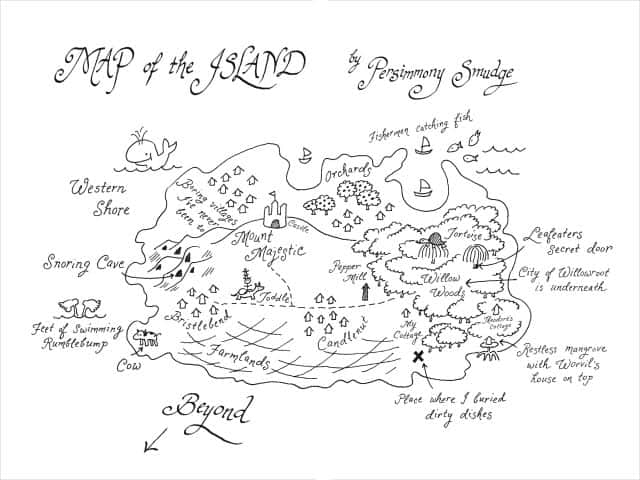 MAP of the ISLAND
by Persimmony Smudge
Fishermen catching fish
Western
Shore
Boring villages
I've never
been to
Orchards
Castle
Mount
Majestic
Tortoise
Leafeaters
secret door
Snoring Cave
Pepper
Mill
Willow
Woods
City of Willowroot
is underneath
Toddle
Feet of Swimming
Rumblebump
Bristlebend
Candlenut
My
Cottage
Theodore's
Cottage
Cow
Farmlands
Restless mangrove
with Worvil's
house on top
Place where I buried
dirty dishes
Beyond